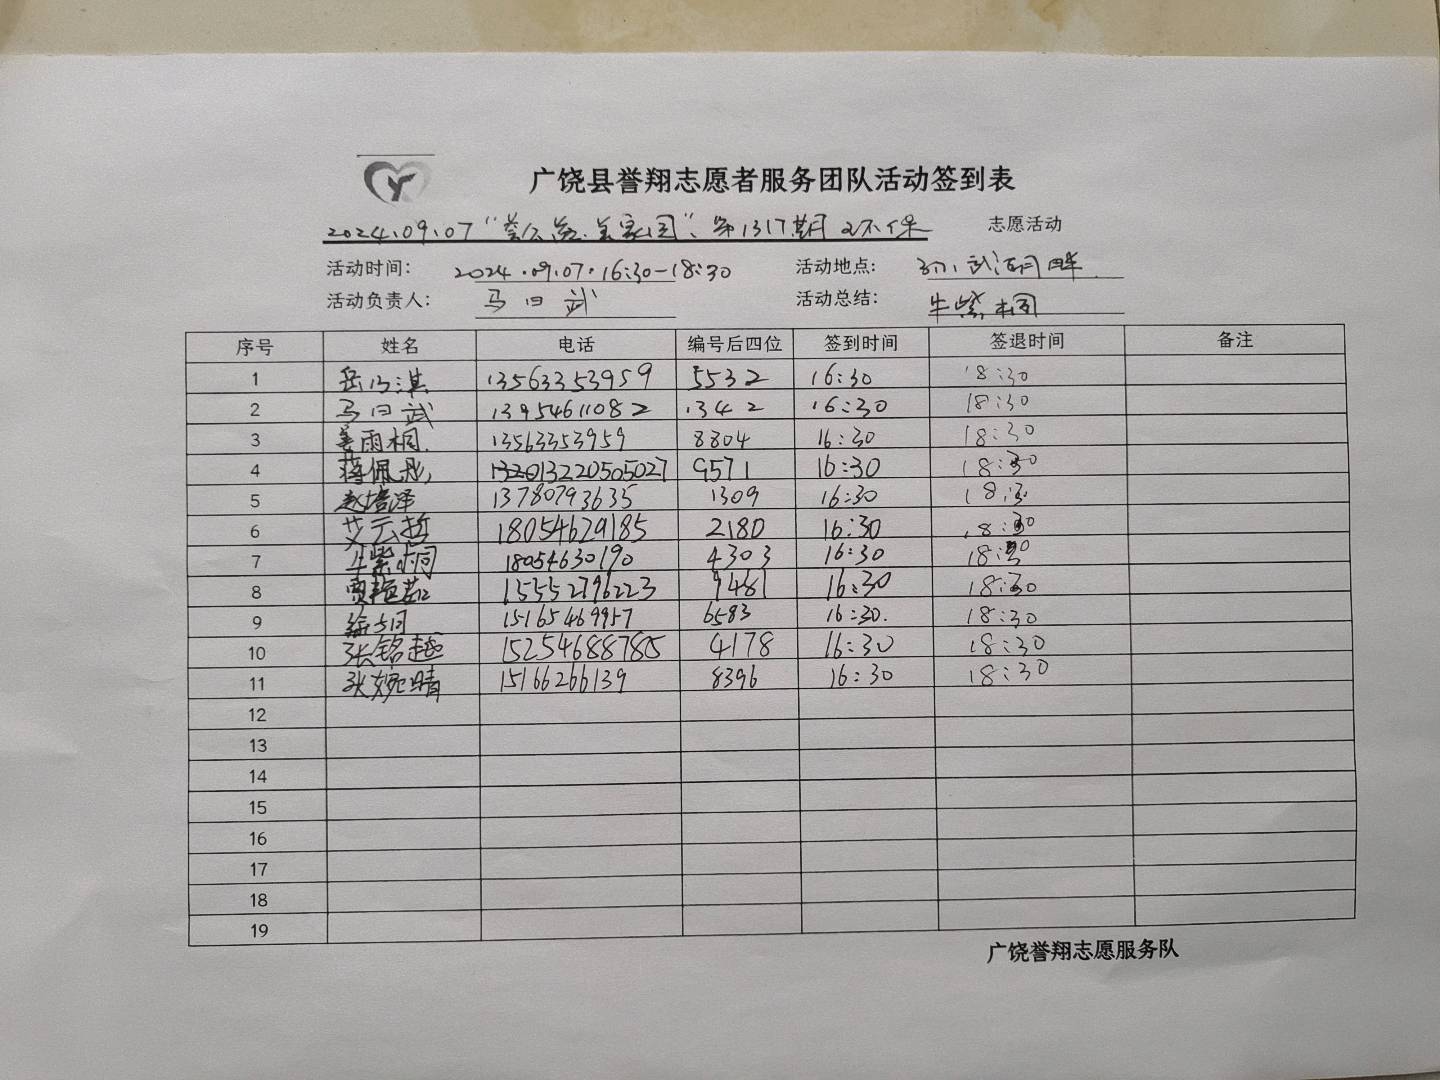 广饶县誉翔志愿者服务团队活动签到表
2024.09.07 "益公益.美家园". 第1317期环保 志愿活动
活动时间： 2024.09.07.16:30-18:30 活动地点： 孙武湖畔
活动负责人： 马曰武 活动总结： 牛紫桐
序号 姓名 电话 编号后四位 签到时间 签退时间 备注
1 岳 淇 13563353959 5532 16:30 18:30
2 马曰武 13954611082 1342 16:30 18:30
3 姜雨桐 13563353959 8804 16:30 18:30
4 蒋佩彤 13201322050 5027 9571 16:30 18:30
5 赵培泽 13780793635 1309 16:30 18:30
6 艾云哲 18054629185 2180 16:30 18:30
7 牛紫桐 18054630190 4303 16:30 18:30
8 贾 茹 15552796223 9481 16:30 18:30
9 15165469957 6583 16:30. 18:30
10 张铭越 15254688785 4178 16:30 18:30
11 张婉晴 15166266139 8396 16:30 18:30
12
13
14
15
16
17
18
19
广饶誉翔志愿服务队